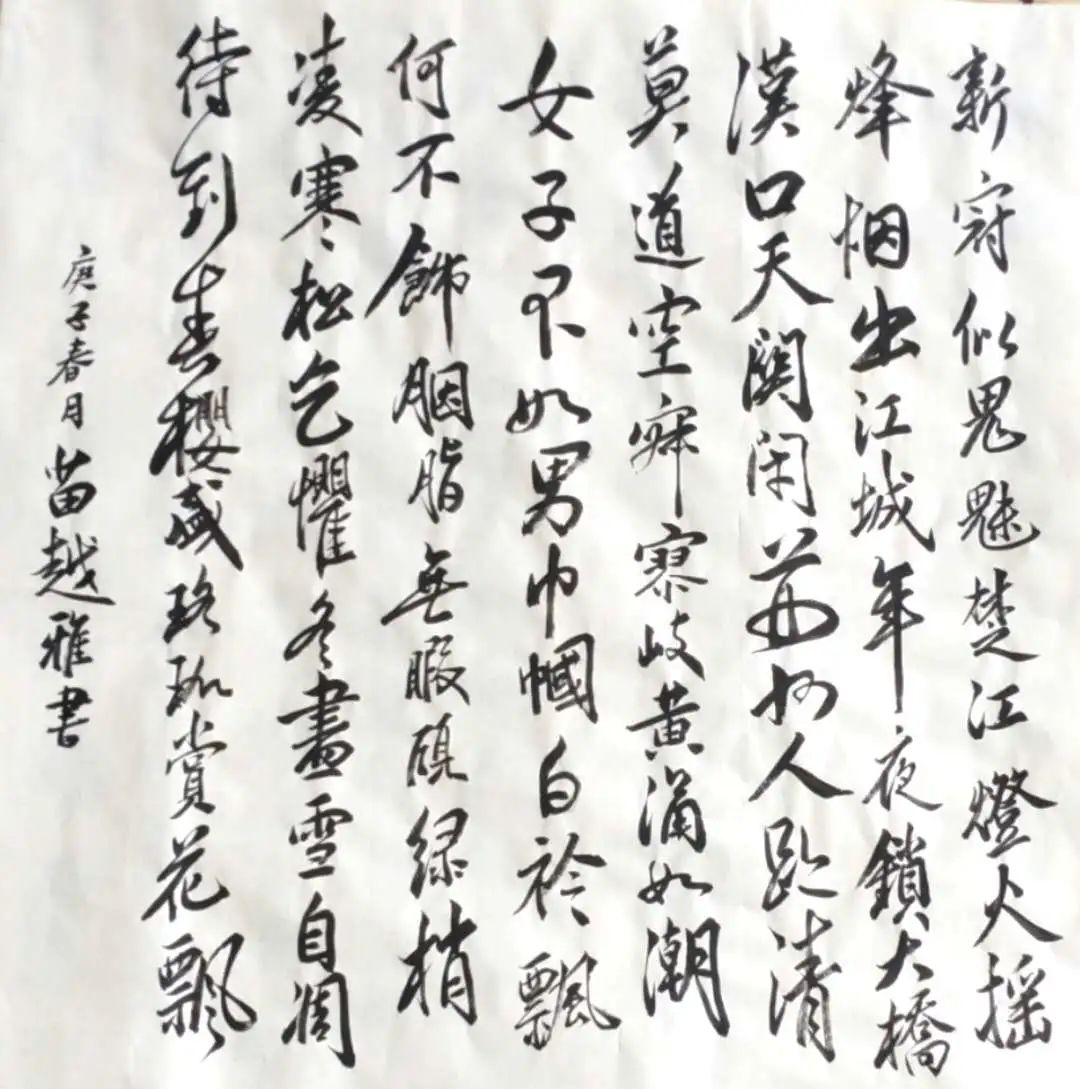 新冠似鬼魅楚江燈火摇
烽烟出江城年夜鎖大橋
漢口天關闲州人跡清
莫道空寂寥岐黄涌如潮
女子不如男巾幗白衿飄
何不飾胭脂無暇顧绿梢
凌寒松乞懼冬盡雪自凋
待到春櫻盛珞珈賞花飄
庚子春月苗越雅書